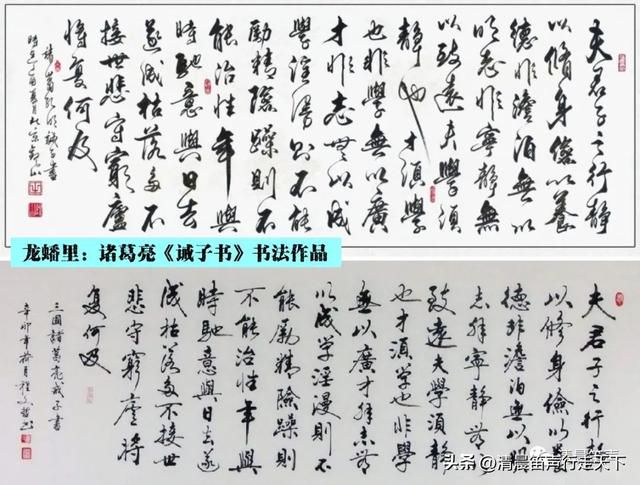 夫君子之行静
以脩身儉以養
德非澹泊無以
明志非寧静無
以致遠夫學須
静也才須學
也非學無以廣
才非志無以成
學淫漫則不能
勵精險躁則不
能治性年與
時馳意與日去
遂成枯落多不
接世悲守窮廬
將复何及
諸葛孔明誡子書
時在丁酉夏月北京
龙蟠里：诸葛亮《诫子书》书法作品
夫君子之行静
以修身儉以養
德非澹泊無以明
志非寧静無以
致遠夫學須静
也才須学也非學
無以廣才非志無
以成学淫漫則不
能勵精險躁則
不能治性年與
時馳意與日去遂
成枯落多不接世
悲守窮廬將
复何及
三國諸葛亮戒子書
辛卯年拾月程
头条 @清晨笛声行走天下